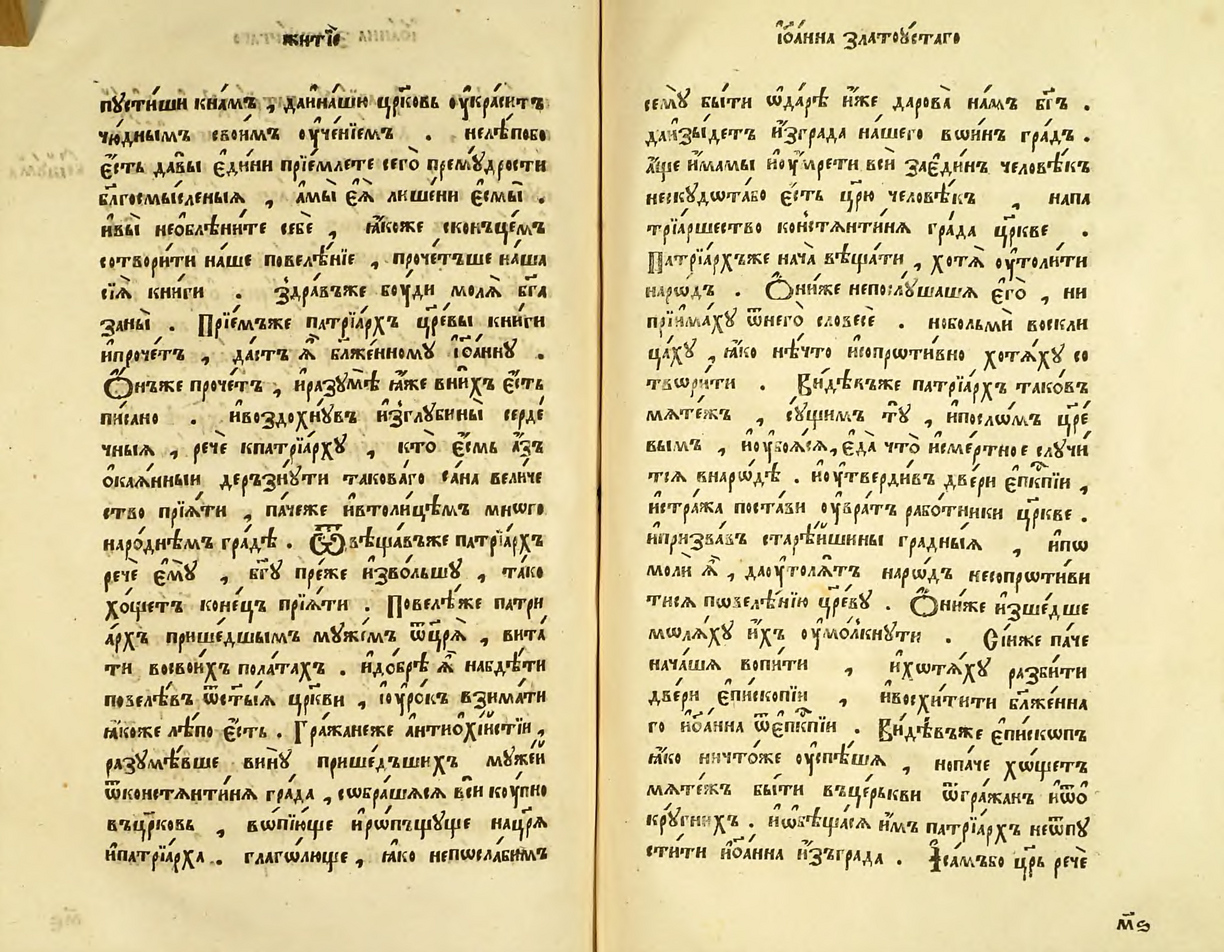 житїѐ
пꙋсти́ши кна́мъ , даина́шꙋ цр҃ковь оу҆кра́ситъ
чю́днымъ свои́мъ оу҆че́нїемъ . нелѣ́побо
є҆́сть давы̀ є҆ди́ни прїе́млете сего̀ премꙋ́дрости
бл҃госмы́сленыѧ , а҆мы̀ є҆ѧ̀ лише́ни є҆смы̀ .
и҆вы̀ необлѣни́те себѐ , ꙗ҆́коже сконъце́мъ
сотвори́ти на́ше повелѣ́нїе , проче́тъше на́ша
сїѧ̀ кни́ги . Здра́въже бо́уди молѧ̀ бг҃а
заны̀ . Прїе́мъже патрїа́рхъ цр҃е́вы кни́ги
и҆проче́тъ , да́стъ ѧ҆̀ бл҃же́нномꙋ і҆ѡа́ннꙋ .
Ѻ҆́нъже проче́тъ , и҆разꙋмѣ̀ ꙗ҆́же вни́хъ є҆́сть
пи́сано . и҆воздохнꙋ́въ и҆зглꙋбины̀ серде́
чныѧ , речѐ кпатрїа́рхꙋ , кто̀ є҆́смь а҆́зъ
ѻ҆каѧ́нныи дерзнꙋ́ти такова́го са́на вели́че
ство прїѧ́ти , па́чеже и҆втоли́цѣмъ мно́гѡ
наро́днѣмъ гра́дѣ . Ѿвѣща́въже патрїа́рхъ
речѐ є҆мꙋ̀ , бг҃ꙋ пре́же и҆зво́льшꙋ , та́ко
хо́щетъ коне́цъ прїѧ́ти . Повелѣ́же патри
а́рхъ прише́дшымъ мꙋже́мъ ѿцр҃ѧ̀ , вита́
ти восвои́хъ пола́тахъ . и҆до́брѣ ѧ҆̀ набдѣ́ти
повелѣ́въ ѿст҃ы́ѧ цр҃кви , і҆оу҆ро́къ взима́ти
ꙗ҆́коже лѣ́по є҆́сть . Гра́жанеже а҆нтиохі́йстїи ,
разꙋмѣ́вше винꙋ̀ прише́дъшихъ мꙋже́й
ѿконстѧнти́нѧ гра́да , сѡбра́шасѧ всѝ ко́упно
въцр҃ковь , вѡпїю́ще и҆рѡпъщꙋ́ще нацр҃ѧ̀
и҆патрїа́рха . глаго́лющѐ , ꙗ҆́ко непѡсла́бимъ
і҆ѡа́нна златоꙋ́стаго
семꙋ̀ бы́ти ѡ҆да́рѣ и҆́же дарова̀ на́мъ бг҃ъ .
даизы́детъ и҆згра́да на́шего вѡи́нъ гра́дъ .
А҆́ще и҆́мамы и҆оу҆мре́ти всѝ заеди́нъ человѣ́къ
нескꙋдѡта́бо є҆́сть цр҃ю человѣ́къ , напа
трїа́ршество ко́нстѧнти́нѧ гра́да цр҃кве .
Патрїа́рхъже нача̀ вѣща́ти , хотѧ̀ оу҆толи́ти
наро́дъ . Ѻ҆ни́же непослꙋ́шашѧ є҆го̀ , ни
прїима́хꙋ ѿнего̀ словесѐ . нобо́льмѝ воскли
ца́хꙋ , ꙗ҆́ко нѣ́что и҆сопрѡти́вно хотѧ́хꙋ со
твѡри́ти . Ви́дѣвъже патрїа́рхъ тако́въ
мѧте́жъ , сꙋ́щимъ тꙋ̀ , и҆послѡ́мъ цр҃е́
вымъ , и҆оу҆боѧ́сѧ, є҆да̀ что̀ и҆сме́ртное слꙋчи́
тсѧ внаро́дѣ . и҆оу҆тверди́въ две́ри є҆пⷭ҇кпїи ,
и҆стра́жа поста́ви оу҆вра́тъ рабо́тники цр҃кве .
и҆призва́въ старѣ́йшины гра́дныѧ , и҆пѡ
моли̇̀ ѧ҆̀ , даоу҆толѧ́тъ наро́дъ несопрѡти́ви
тисѧ пѡвелѣ́нїю цр҃е́вꙋ . Ѻ҆ни́же и҆зше́дше
мѡлѧ́хꙋ и҆́хъ оу҆мо́лкнꙋти . Сі́иже па́че
нача́шѧ вопи́ти , и҆хѡтѧ́хꙋ разби́ти
две́ри є҆писко́пїи , и҆восхи́тити бл҃же́нна
го и҆ѡа́нна ѿепⷭ҇кпїи . Ви́дѣвъже є҆пи́скѡпъ
ꙗ҆́ко ничто́же оу҆спѣ́шѧ , нопа́че хѡ́щетъ
мѧте́жъ бы́ти въце́рькви ѿгра́жанъ и҆ѿо
крꙋ́гнихъ . и҆ѡвѣща́сѧ и҆́мъ патрїа́рхъ неѿпꙋ
сти́ти и҆ѡа́нна и҆зъгра́да . І҆са́мъбо цр҃ь речѐ
м҃ѕ